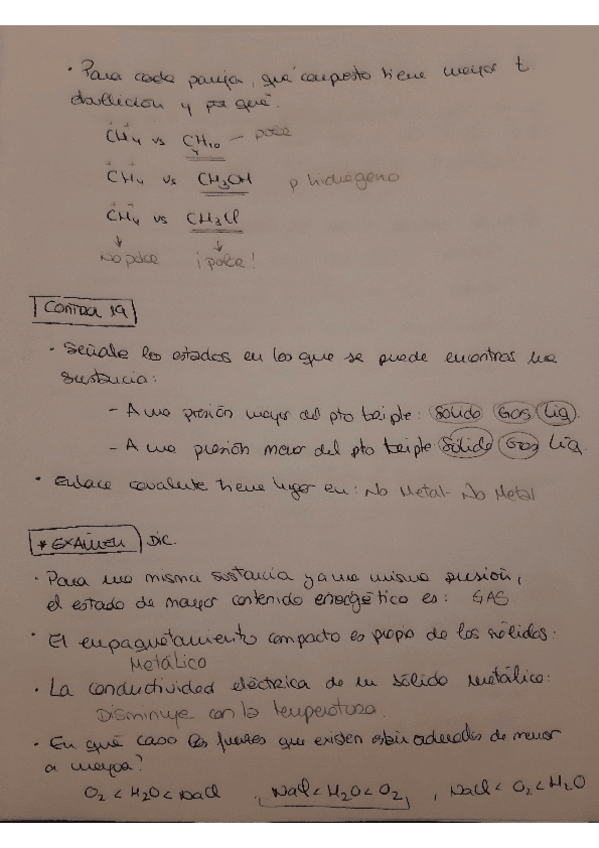 · Para cada pareja, qué compuesto tiene mayor t
dbullición y por qué.
CH4 vs C4H10 — polar
CH4 vs CH3OH p hidrógeno
CH4 vs CH3Cl
↓ ↓
No polar ¡polar!
CONTROL 19
· Señale los estados en los que se puede encontrar una
sustancia:
- A una presión mayor del pto triple: Sólido Gas Liq.
- A una presión menor del pto triple Sólido Gas Liq.
· Enlace covalente tiene lugar en: No Metal - No Metal
* EXAMEN DIC.
· Para una misma sustancia y a una misma presión,
el estado de mayor contenido energético es: GAS
· El empaquetamiento compacto es propio de los sólidos:
Metálico
· La conductividad eléctrica de un sólido metálico:
Disminuye con la temperatura.
· En qué caso las fuerzas que existen están ordenadas de menor
a mayor?
O2 < H2O < NaCl NaCl < H2O < O2 , NaCl < O2 < H2O